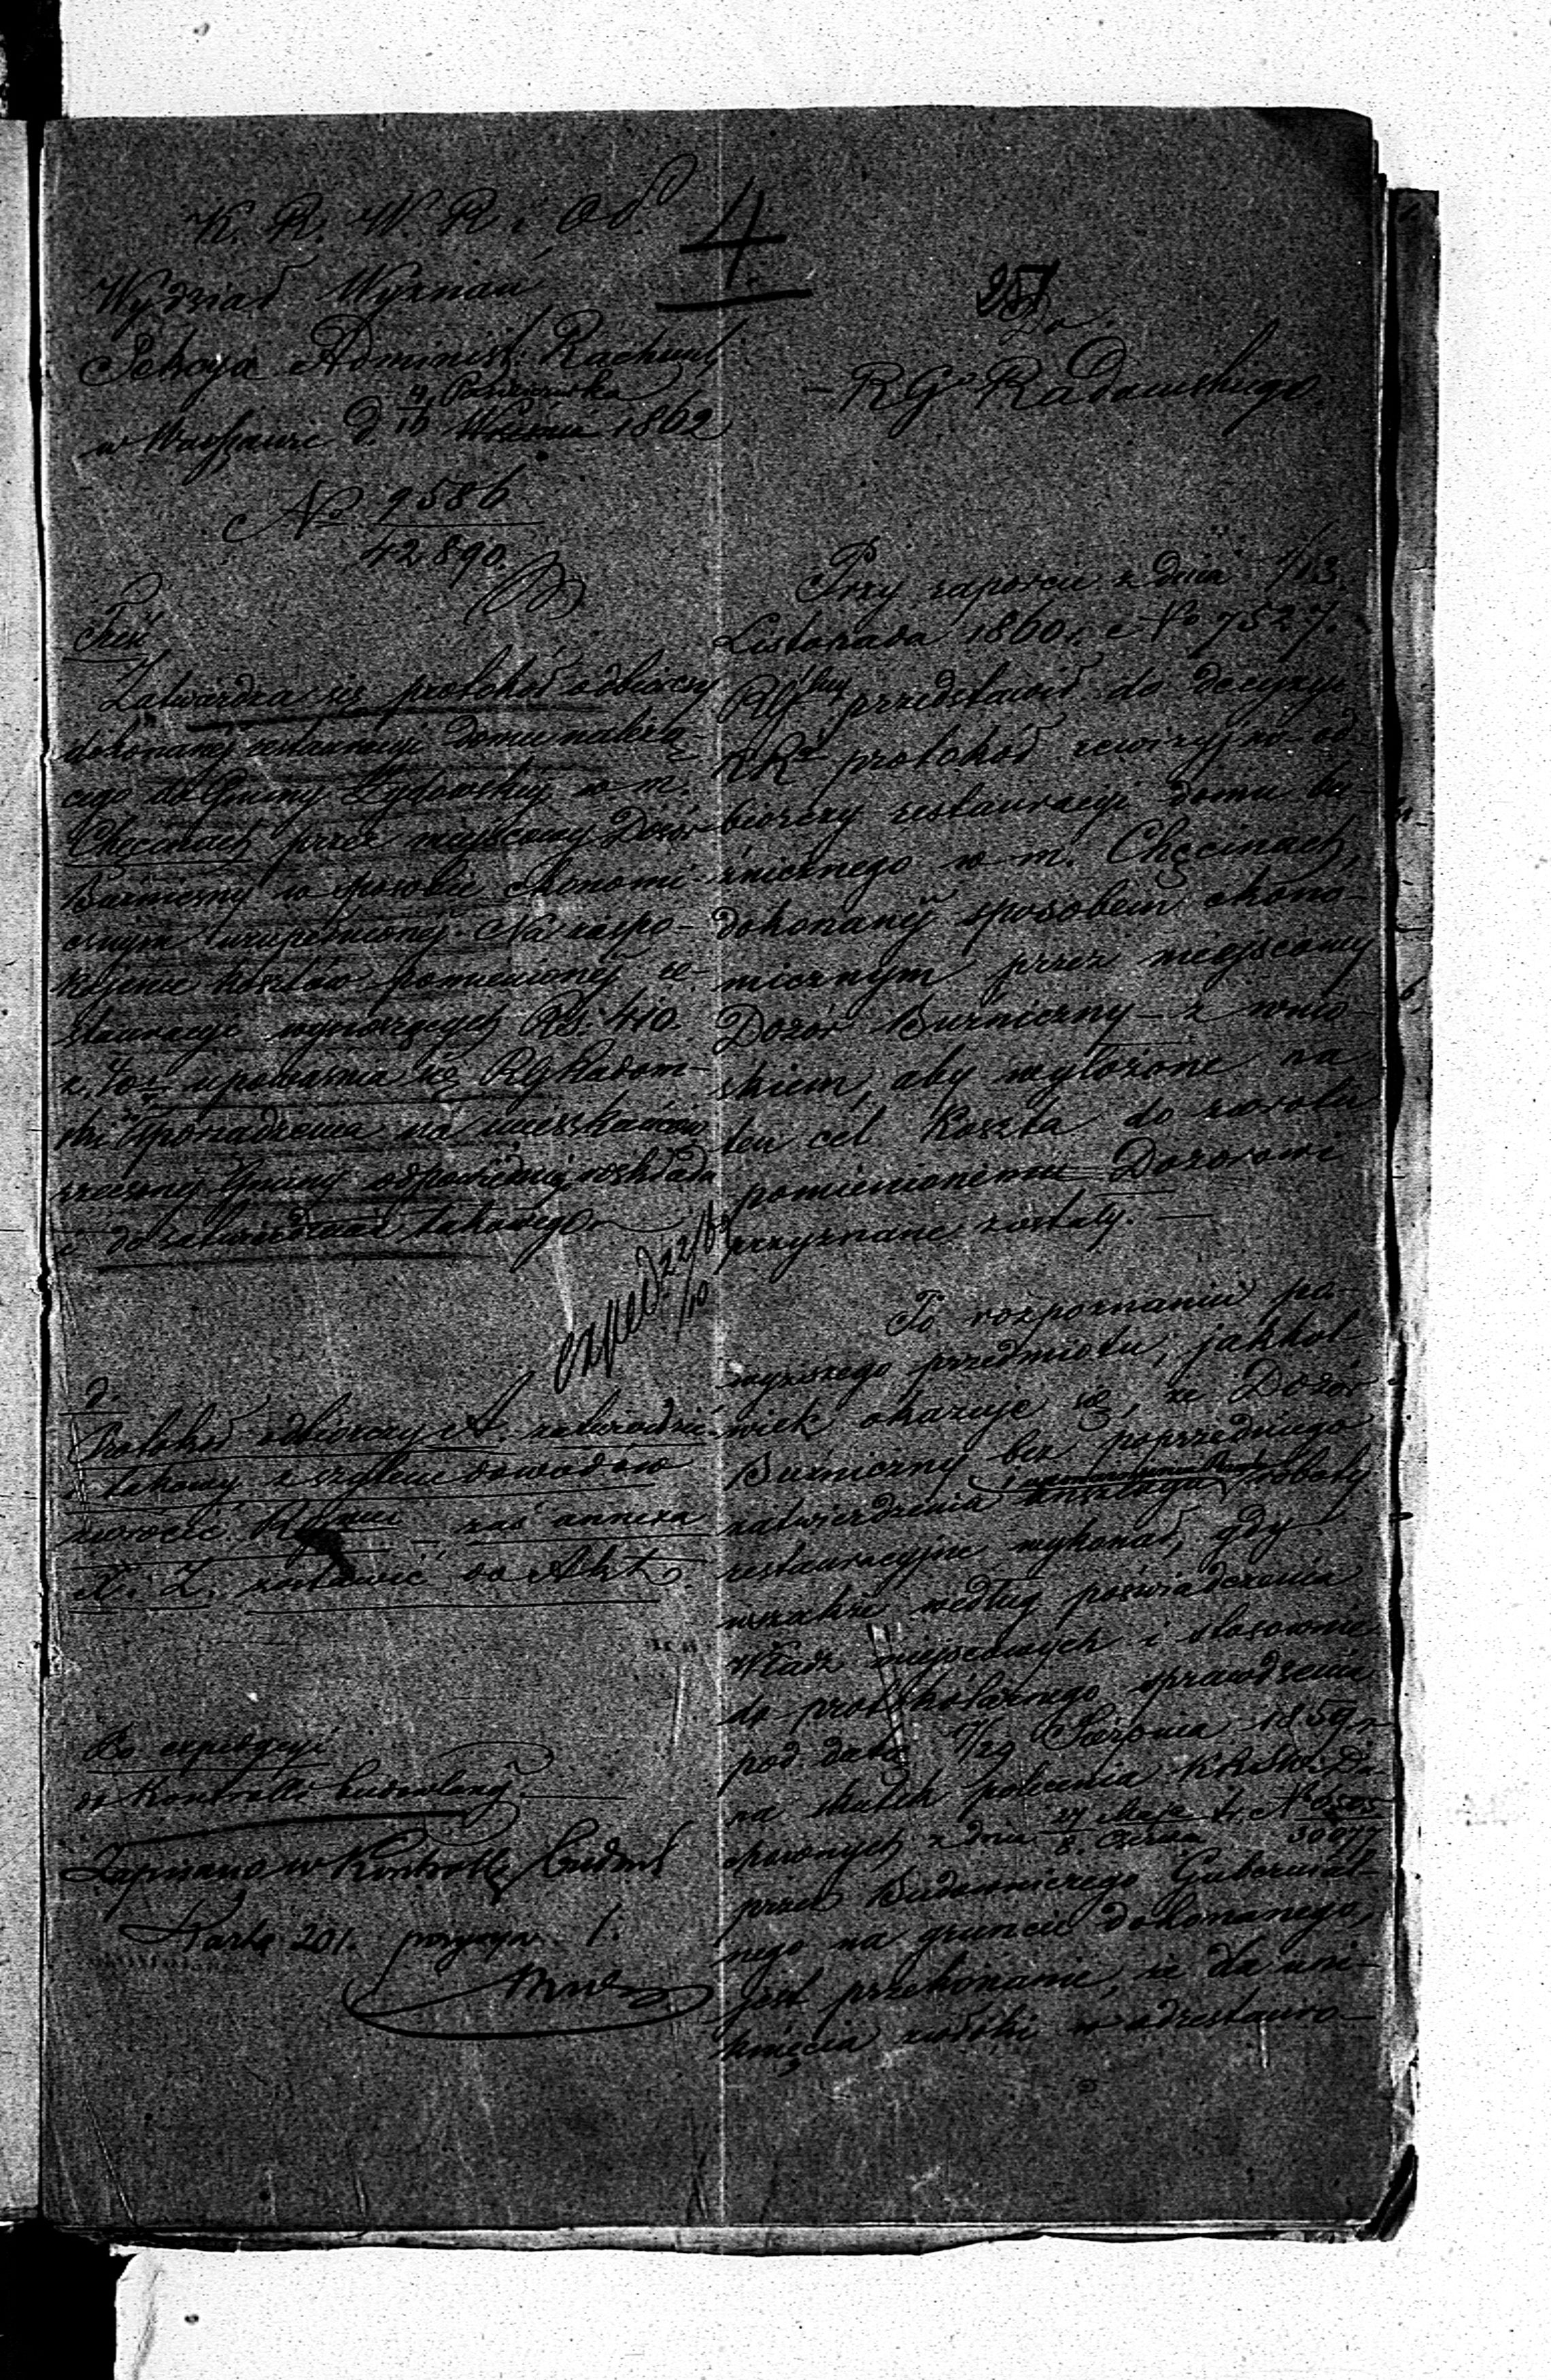 K. R. W. R. i O. P.
4.
Wydział Wyznań
Sekcya Administ. Rachunk.
4 Października
w Warszawie d. 16 Września 1862
No 9586
42890.
257
Do
R G Radomskiego
Treść
Zatwierdza się protokół odbiorczy
dokonanej restauracyi domu należą-
cego do Gminy Żydowskiej w m.
Chęcinach przez miejscowy Dozór
Bużniczny w sposobie ekonomi-
cznym uzupełnionej. Na zaspo-
kojenie kosztów pomienionej re-
stauracyi wynoszących Rs. 410.
k. 40 upoważnia się RG Radom-
ski sporządzenia na mieszkańców
rzeczonej Gminy odpowiedniej rozkładu
i do zatwierdzenia takowego
exped. 22/10
d.
Protokół odbiorczy A. zatwierdzić
i takowy z szyciem dowodów
zwrócić Rządowi zaś annexa
X. i Z. zostawić do Akt.
Po expedycyi
do Kontrolli budowlanej.
Zapisano w Kontrolli budowl
Karta 201. pozycya 1.
Przy raporcie z dnia 1/13
Listopada 1860 r. No 7527.
RGlny przedstawił do decyzyi
KR protokół rewizyjno od-
biorczy restauracyi domu bu-
żnicznego w m. Chęcinach,
dokonanej sposobem ekono-
micznym przez miejscowy
Dozór Bużniczny – z wnio-
skiem, aby wyłożone na
ten cel koszta do zwrotu
pomienionemu Dozorowi
przyznane zostały. —
Po rozpoznaniu po-
wyższego przedmiotu, jakkol-
wiek okazuje się, że Dozór
Bużniczny bez poprzedniego
zatwierdzenia anszlagu roboty
restauracyjne wykonał, gdy
wszakże według poświadczenia
Władz miejscowych i stosownie
do protokólarnego sprawdzenia
pod datą 17/29 Sierpnia 1859 r.
na skutek polecenia KRSW i Du-
chownych z dnia 27 Maja / 8 Czerwca t. r. No 6505/30077
przez Budowniczego Gubernial-
nego na gruncie dokonanego,
jest przekonanie, że dla uni-
knięcia zwłoki w odrestauro-